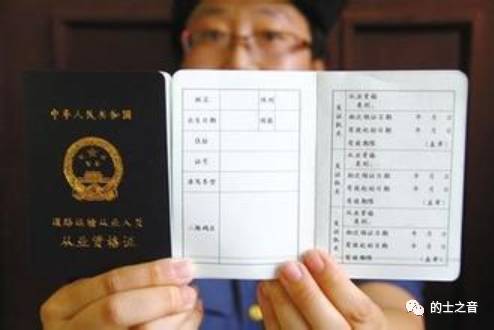 中华人民共和国
道路运输从业人员
从业资格证
姓名
性别
出生日期
国籍
住址
证号
准驾车型
二维码区
发证机关
从业资格
类别:
初次领证日期 年 月 日
有效起始日期 年 月 日
有效期限 (盖章)
发证机关
从业资格
类别:
初次领证日期 年 月 日
有效起始日期 年 月 日
有效期限 (盖章)
发证机关
从业资格
类别:
初次领证日期 年 月 日
有效起始日期 年 月 日
有效期限 (盖章)
的士之音